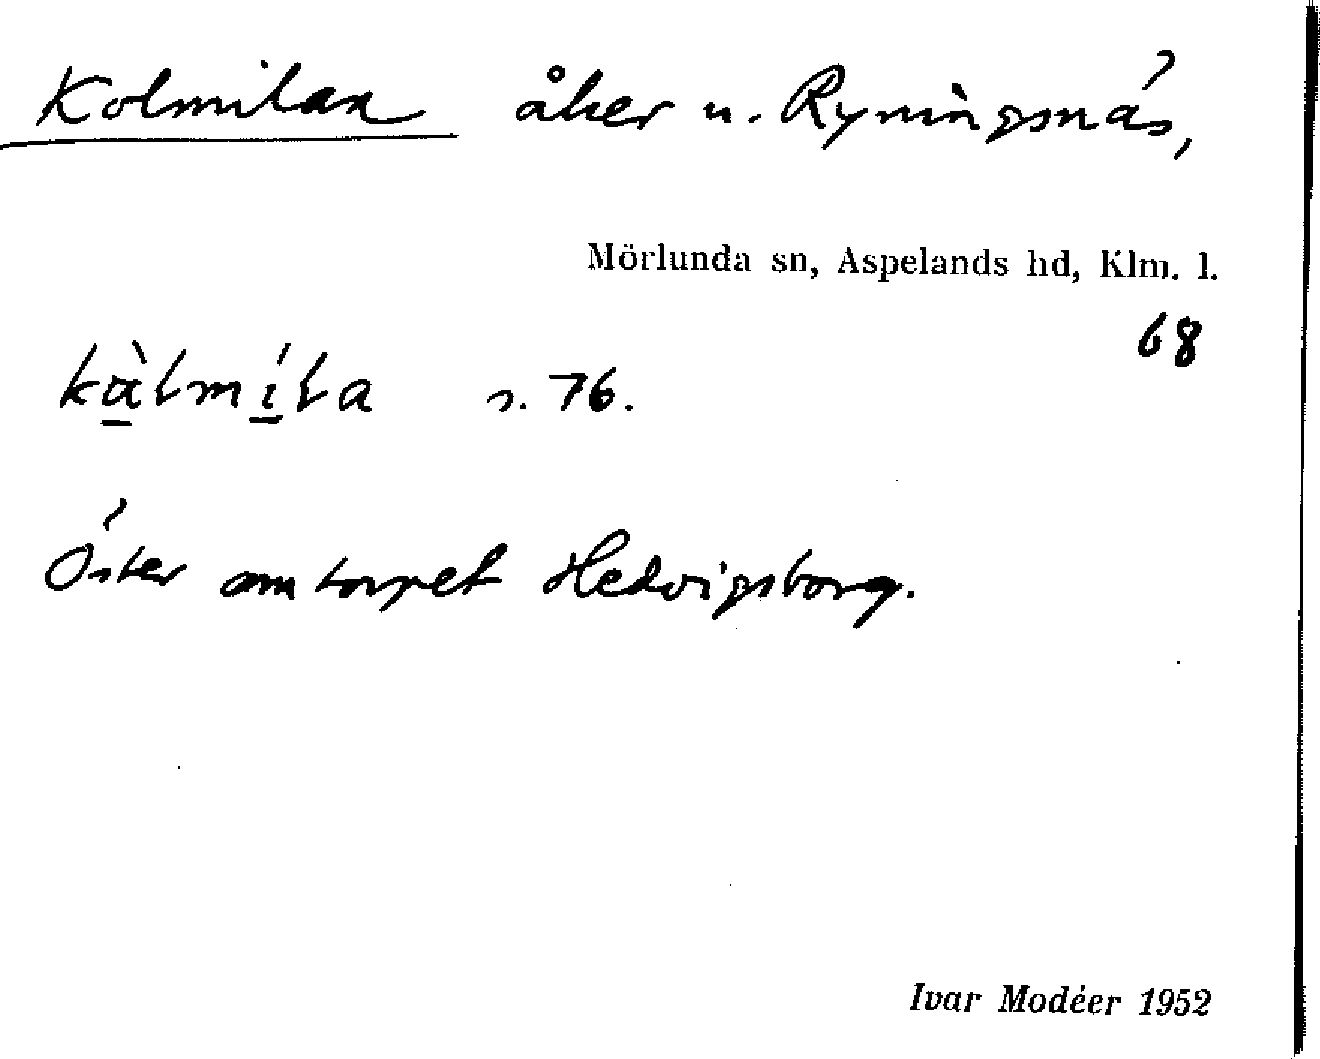 Kolmilan åker u. Ryningsnäs,
Mörlunda sn, Aspelands hd, Klm. l.
68
kàlmíla s. 76.
Öster om torpet Hedvigsborg.
Ivar Modéer 1952